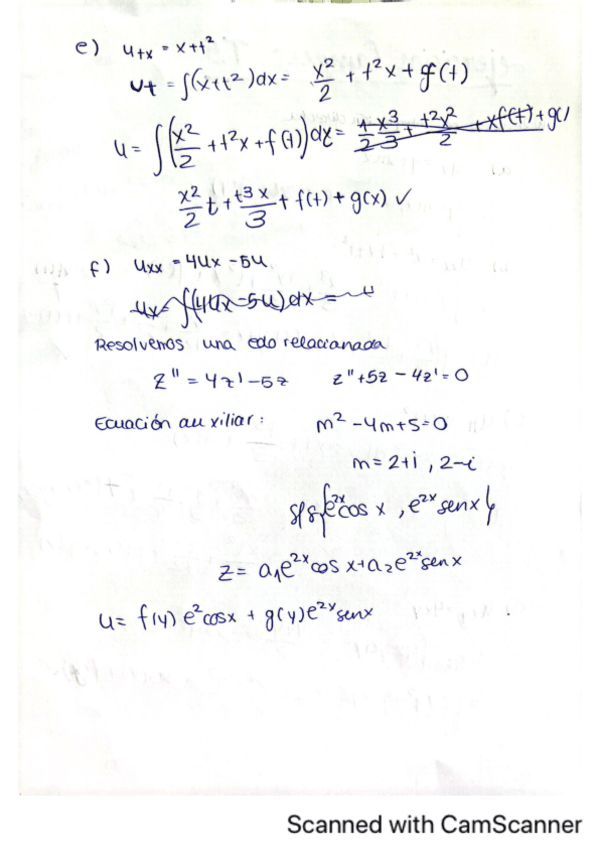 e) u_tx = x+t²
u_t = ∫(x+t²)dx = x²/2 + t²x + f(t)
u = ∫(x²/2 + t²x + f(t))dt = 1/2 x³/3 + t²x²/2 + xf(t) + g(
x²/2 t + t³x/3 + f(t) + g(x) ✓
f) u_xx = 4u_x - 5u
u_x = ∫(4u_x - 5u)dx =
Resolvemos una edo relacionada
z'' = 4z' - 5z z'' + 5z - 4z' = 0
Ecuación auxiliar: m² - 4m + 5 = 0
m = 2+i , 2-i
{e^2x cos x , e^2x sen x}
z = a₁e^2x cos x + a₂e^2x sen x
u = f(y) e² cos x + g(y) e^2x sen x
Scanned with CamScanner